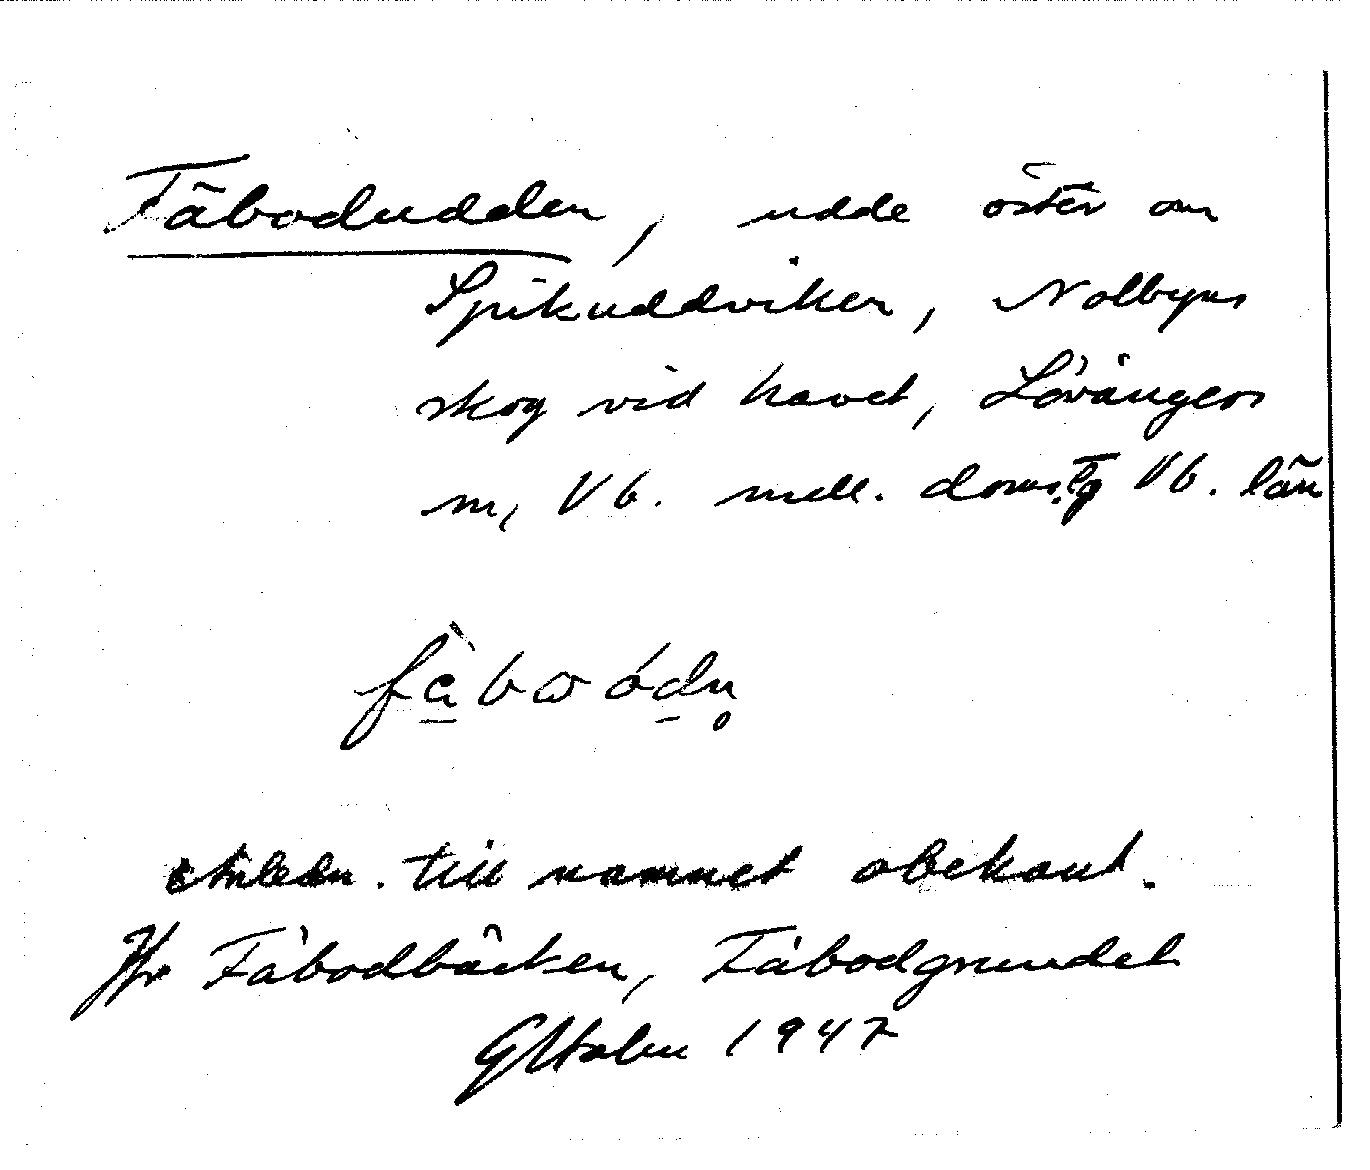 Fäbodudden, udde öster om
Spikuddviken, Nolbyns
skog vid havet, Lövångers
sn, Vb. mell. doms.tg Vb. län
till namnet obekant.
Jfr Fäbodbäcken, Fäbodgrundet
GHolm 1947